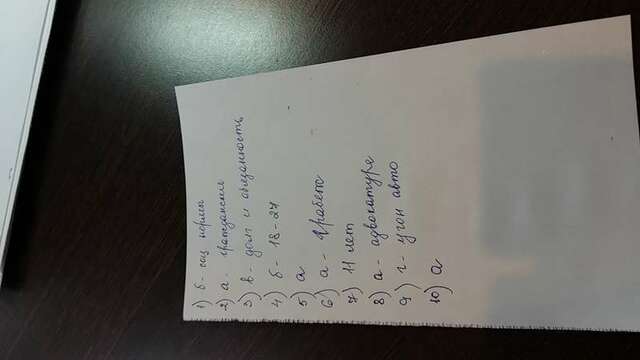 1) б - соц нормы
2) а - гражданские
3) в - долг и обязанность
4) б - 18-27
5) а
6) а - грабеж
7) 11 лет
8) а - адвокатура
9) г - угон авто
10) а